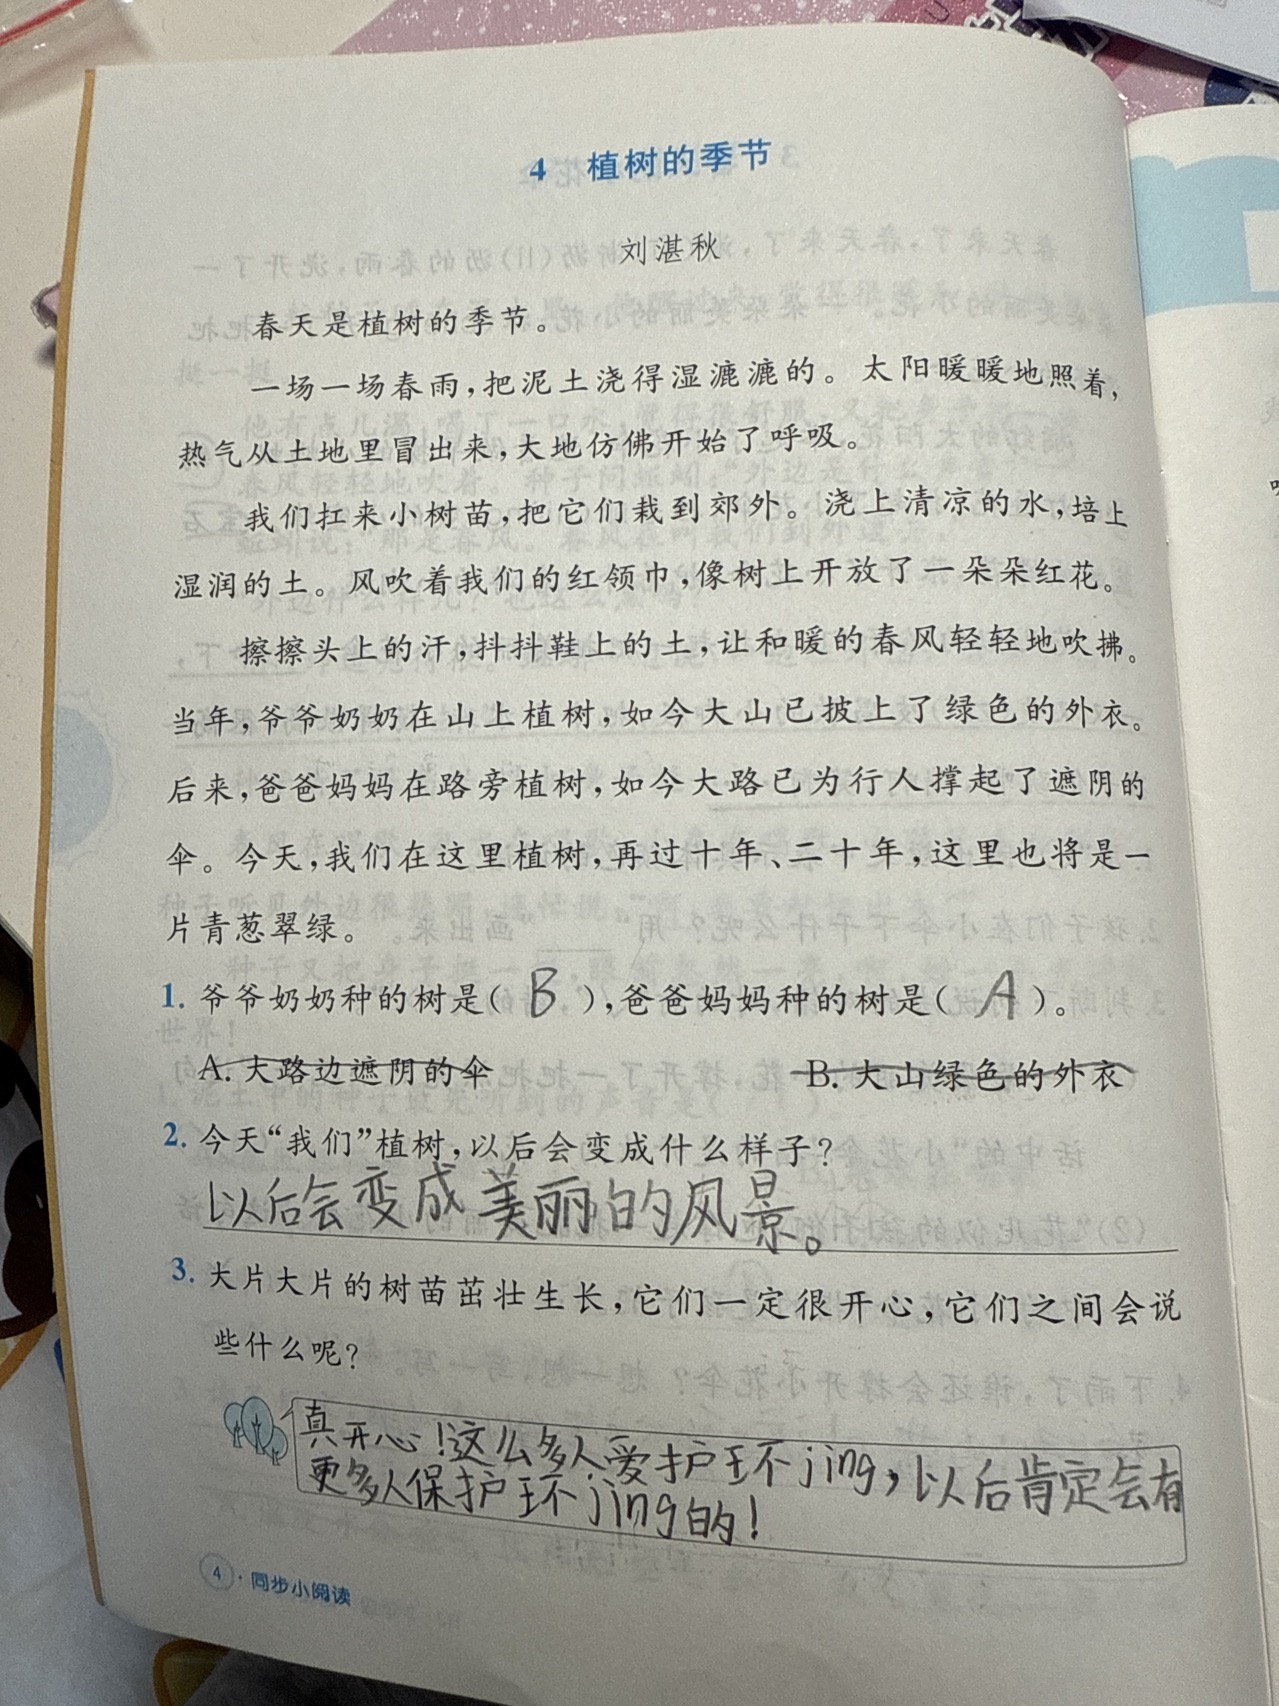 4 植树的季节
刘湛秋
春天是植树的季节。
一场一场春雨，把泥土浇得湿漉漉的。太阳暖暖地照着，
热气从土地里冒出来，大地仿佛开始了呼吸。
我们扛来小树苗，把它们栽到郊外。浇上清凉的水，培上
湿润的土。风吹着我们的红领巾，像树上开放了一朵朵红花。
擦擦头上的汗，抖抖鞋上的土，让和暖的春风轻轻地吹拂。
当年，爷爷奶奶在山上植树，如今大山已披上了绿色的外衣。
后来，爸爸妈妈在路旁植树，如今大路已为行人撑起了遮阴的
伞。今天，我们在这里植树，再过十年、二十年，这里也将是一
片青葱翠绿。
1. 爷爷奶奶种的树是（ B ），爸爸妈妈种的树是（ A ）。
A. 大路边遮阴的伞 B. 大山绿色的外衣
2. 今天“我们”植树，以后会变成什么样子？
以后会变成美丽的风景。
3. 大片大片的树苗茁壮生长，它们一定很开心，它们之间会说
些什么呢？
真开心！这么多人爱护环jing，以后肯定会有
更多人保护环jing的！
4 · 同步小阅读